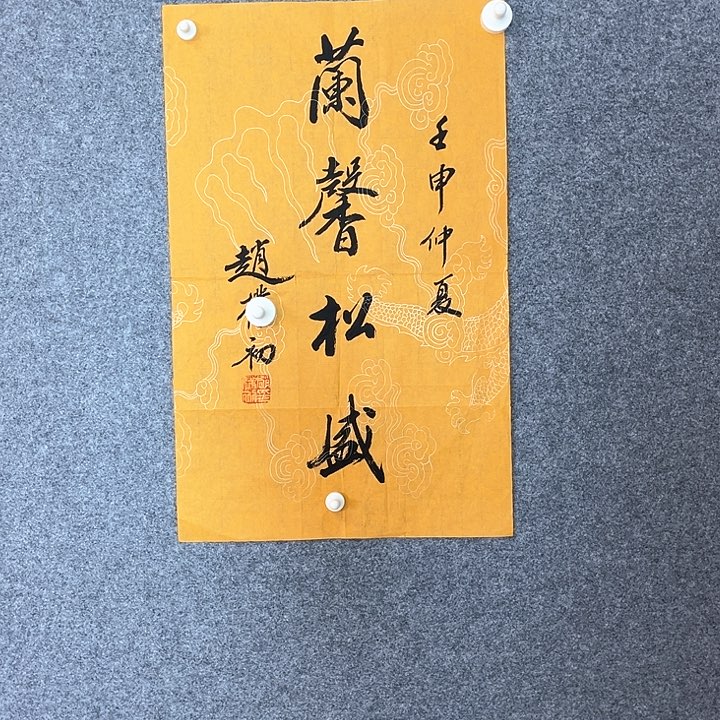 壬申仲夏
蘭馨松盛
趙
初